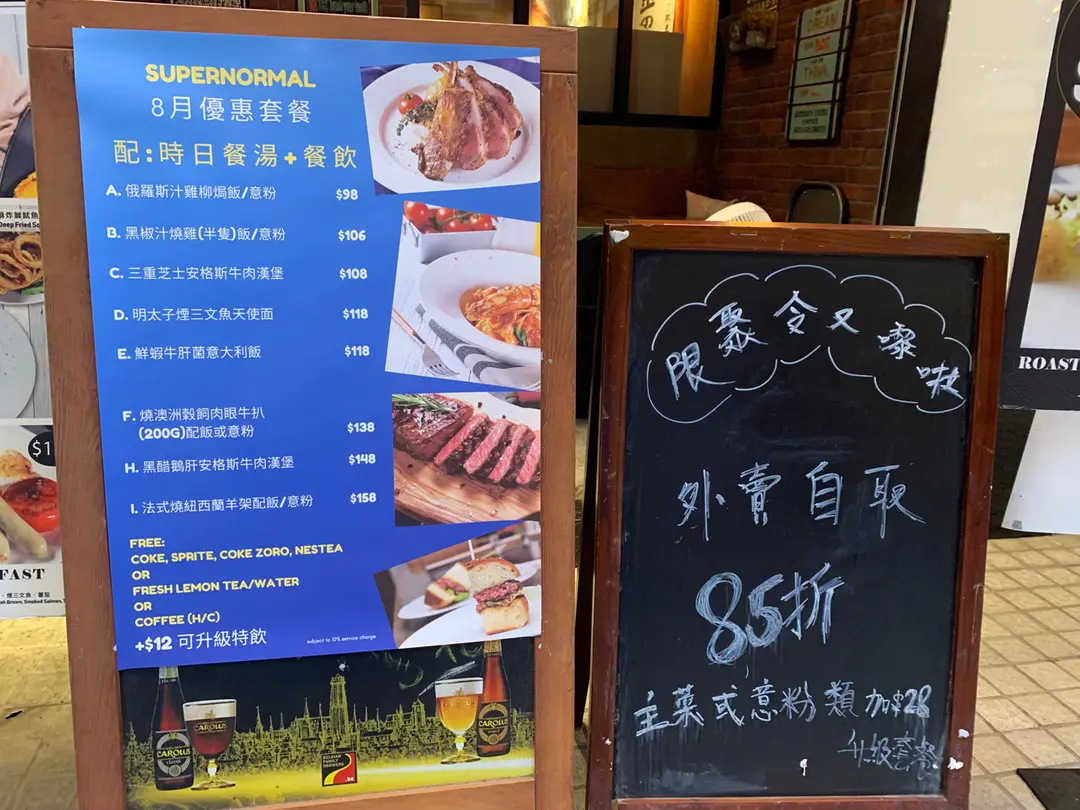 SUPERNORMAL
8月優惠套餐
配:時日餐湯+餐飲
A. 俄羅斯汁雞柳焗飯/意粉 $98
B. 黑椒汁燒雞(半隻)飯/意粉 $106
C. 三重芝士安格斯牛肉漢堡 $108
D. 明太子煙三文魚天使面 $118
E. 鮮蝦牛肝菌意大利飯 $118
F. 燒澳洲穀飼肉眼牛扒
(200G)配飯或意粉 $138
H. 黑醋鵝肝安格斯牛肉漢堡 $148
I. 法式燒紐西蘭羊架配飯/意粉 $158
FREE:
COKE, SPRITE, COKE ZORO, NESTEA
OR
FRESH LEMON TEA/WATER
OR
COFFEE (H/C)
+$12 可升級特飲
subject to 10% service charge
CAROLUS
CAROLUS
CAROLUS
CAROLUS
BELGIAN
FAMILY
BREWERS
.be
限聚令又嚟啦
外賣自取
85折
主菜或意粉類加$28
升級套餐
酥炸鮮魷魚
Deep Fried
$1
FAST
煙三文魚、蕃茄
Brown, Smoked Salmon,
DREAM
BIG
THINK
ROAST